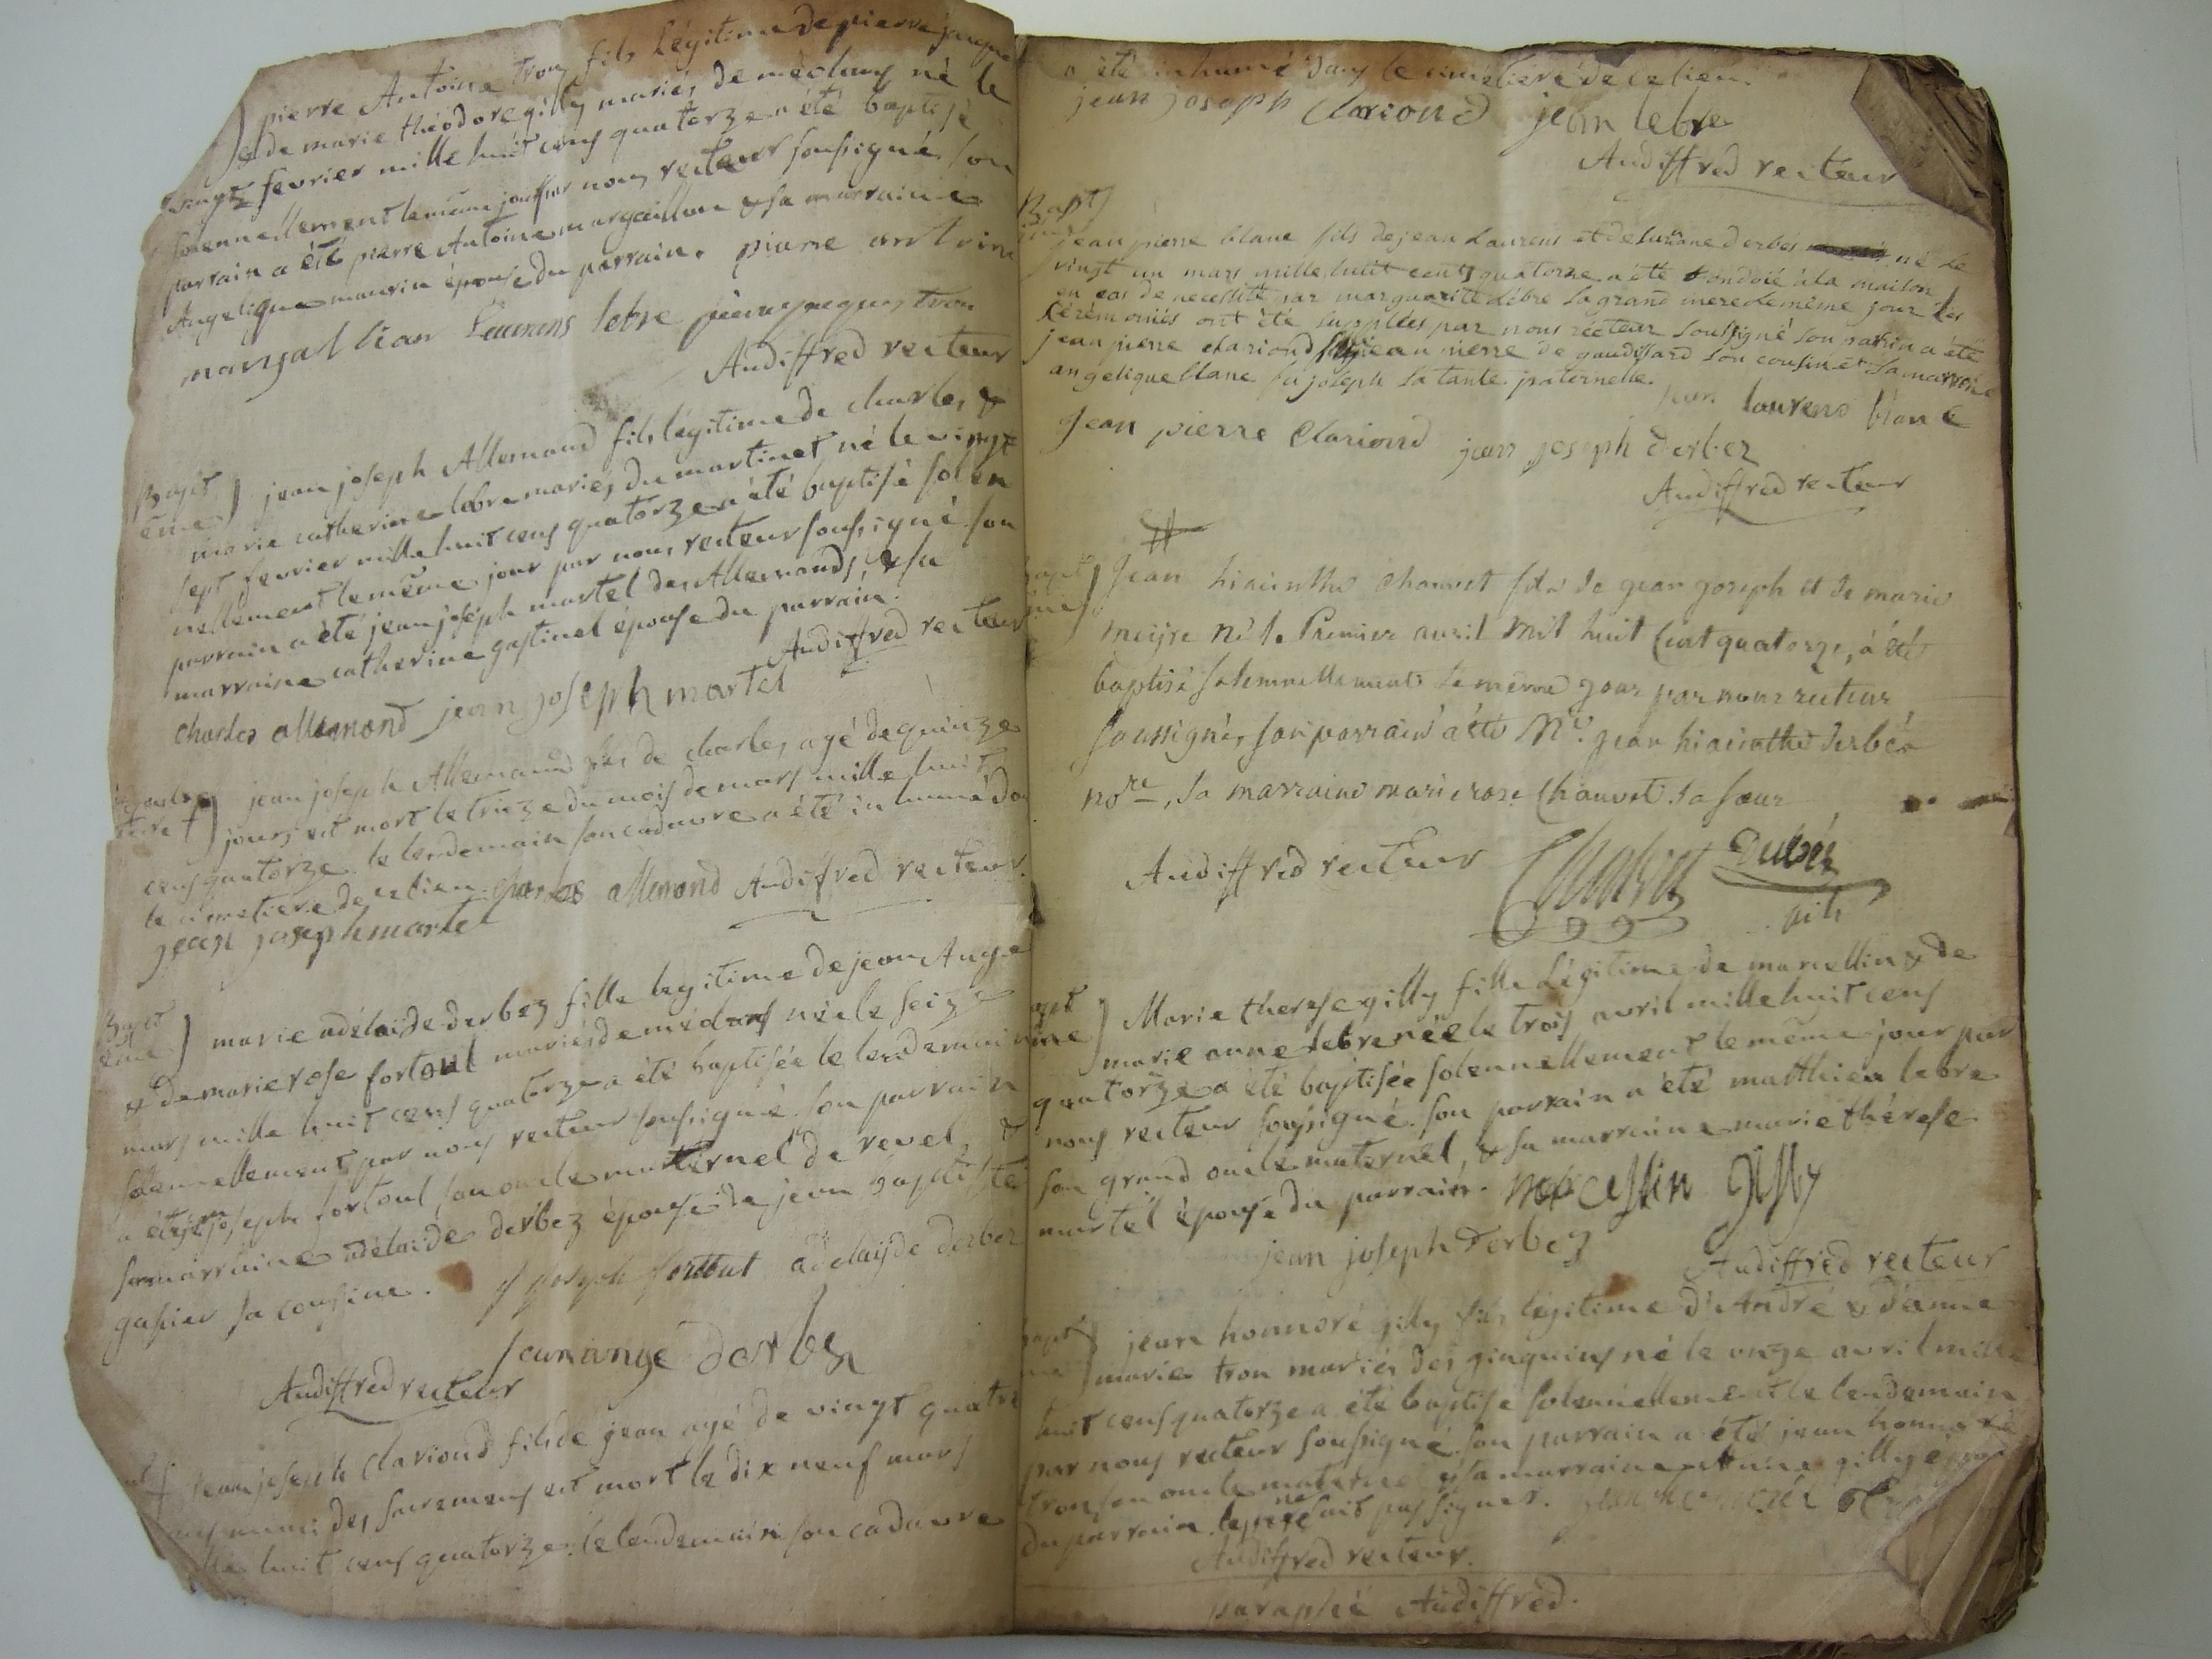 pierre Antoine tron fils Légitime de pierre jacque
& de marie théodore gilly mariés de méolans né le
vingt fevrier mille huit cens quatorze a été baptisé
solennellement le même jour par nous recteur soussigné son
parrain a été pierre Antoine margaillan & sa marraine
Angelique maurin épouse du parrain. piarre antoin
margallian Laurens lebre pierre jacques tron
Audiffred recteur
Bapt
ême) jean joseph Allemand fils légitime de charles &
marie catherine lebre mariés du martinet né le vingt
sept fevrier mille huit cens quatorze a été baptisé solen
nellement le même jour par nous recteur soussigné son
parrain a été jean joseph martel des Allemands, & sa
marraine catherine gastinel épouse du parrain.
Audiffred recteur
charles allemand jean joseph martel
jean joseph Allemand fils de charles agé de quinze
jours est mort le treize du mois de mars mille huit
cens quatorze le lendemain son cadavre a été inhumé dan
le cimetiere de ce lieu charles allemand Audiffred recteur.
jean joseph martel
Bapt
ême) marie adélaïde derbez fille legitime de jean Ange
& de marie rose fortoul mariés de méolans née le seize
mars mille huit cens quatorze a été baptisée le lendemain
solennellement par nous recteur soussigné son parrain
a été jn joseph fortoul son oncle maternel de revel, &
sa marraine adélaïde derbez épouse de jean baptiste
gassier sa cousine. jh joseph fortout adelaijde derbez
jean ange derbez
Audiffred recteur
jean joseph Clariond fils de jean agé de vingt quatre
ans muni des sacremens est mort le dix neuf mars
mille huit cens quatorze le lendemain son cadavre
a été inhumé dans le cimetiere de ce lieu.
jean joseph clariond jean lebre
Audiffred recteur
Bapt
ême) jean pierre blanc fils de jean Laurens et de Suzane derbés né le
vingt un mars mille huit cents quatorze a été ondoié à la maison
en cas de necessité par marguerite lébre sa grand mere le même jour les
cérémoniés ont été supplées par nous récteur soussigné son parrin a été
jean pierre clariond jean pierre de gaudissard son cousin et sa marreine
angelique blanc fu joseph sa tante paternelle.
jean laurens blanc
Jean pierre Clariond jean joseph derbez
Audiffred recteur
Jean hiacinthe chauvet fils de jean joseph et de marie
meijre né le Premier avril mil huit Cent quatorze, a été
baptisé solemnellement le même jour par nous recteur
soussigné, son parrain a été Me. jean hiacinthe derbés
nore, sa marraine marie rose Chauvet sa sœur
Audiffred recteur Chauvet Derbés
Bapt
ême) Marie therese gilly fille Légitime de marcellin & de
marie anne lebre née le trois avril mille huit cens
quatorze a été baptisée solennellement le même jour par
nous recteur soussigné. son parrain a été matthieu lebre
son grand oncle maternel, & sa marraine marie thérese
martel épouse du parrain. marcellin gilly
jean joseph derbez
Audiffred recteur
jean honnoré gilly fils légitime d'André & d'anne
marie tron mariés des ginquins né le onze avril mille
huit cens quatorze a été baptisé solennellement le lendemain
par nous recteur soussigné son parrain a été jean honnoré
tron son oncle maternel & sa marraine Anne gilly épouse
du parrain. le père ne sait pas signer.
Audiffred recteur.
paraphé Audiffred.